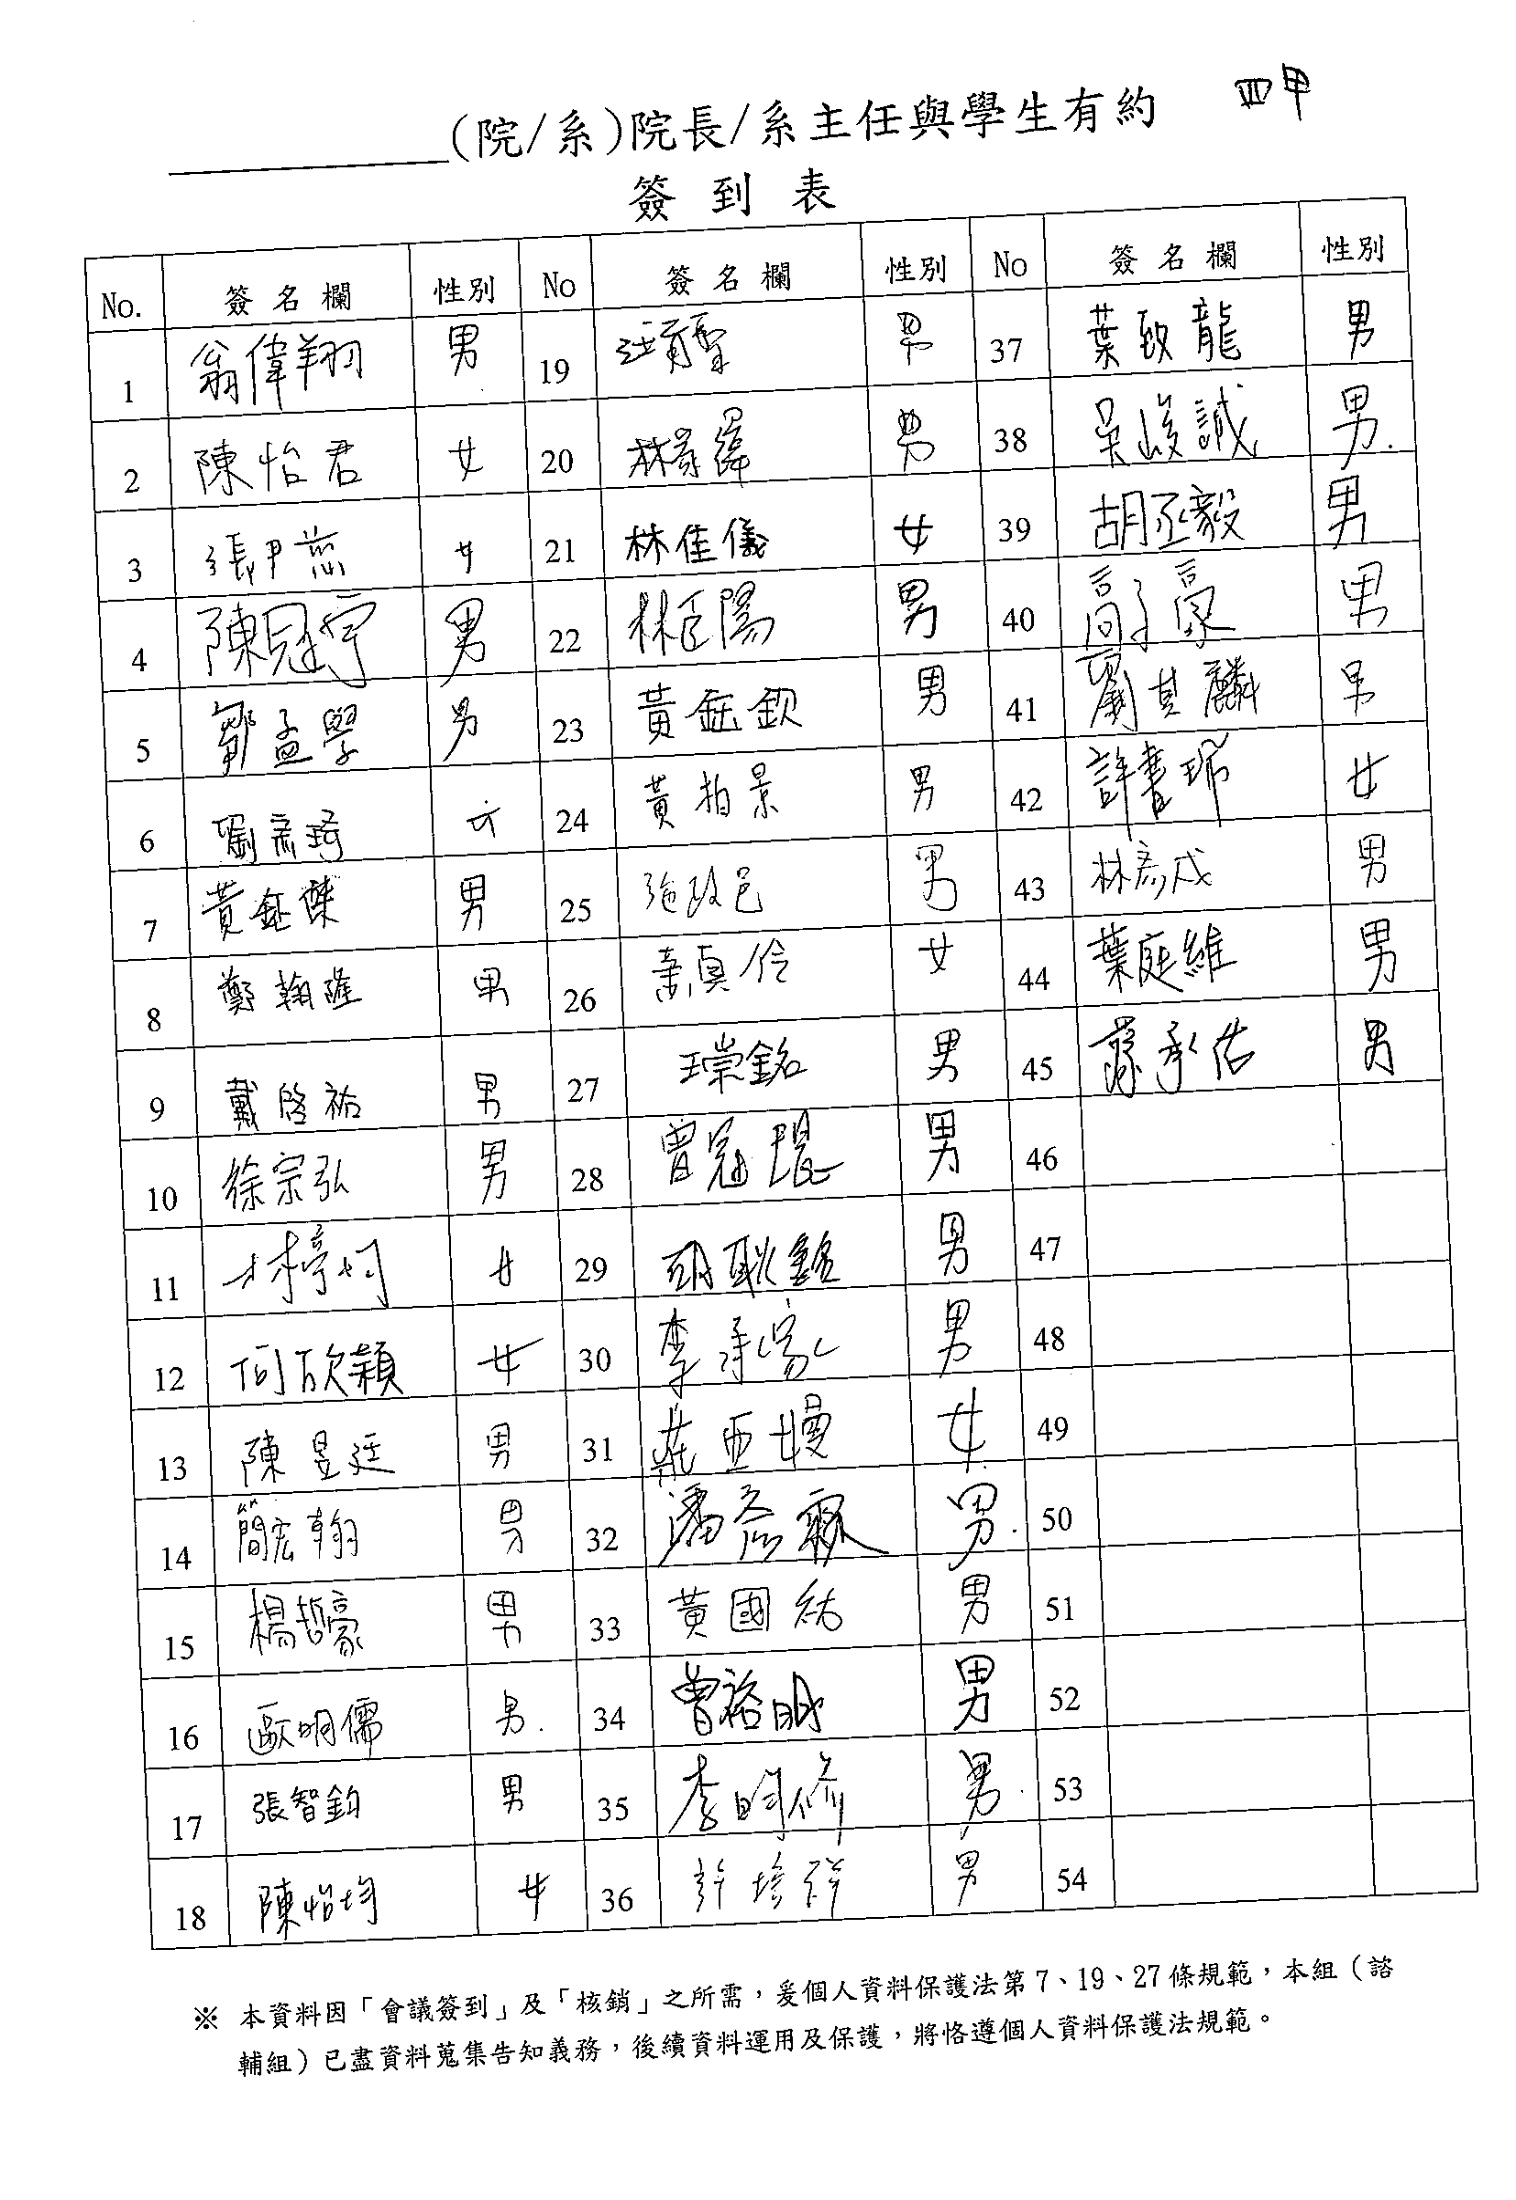 四甲
(院/系)院長/系主任與學生有約
簽到表
No. 簽名欄 性別 No 簽名欄 性別 No 簽名欄 性別
1 翁偉翔 男 19 男 37 葉致龍 男
2 陳怡君 女 20 男 38 吳峻誠 男.
3 張尹 女 21 林佳儀 女 39 胡丞毅 男
4 陳冠宇 男 22 林臣陽 男 40 高子豪 男
5 鄒孟學 男 23 黃鈺欽 男 41 劉其麟 男
6 劉彥琦 女 24 黃柏景 男 42 許書琋 女
7 黃鈺傑 男 25 施政邑 男 43 林彥成 男
8 鄭翰隆 男 26 蕭真伶 女 44 葉庭維 男
9 戴啓祐 男 27 王崇銘 男 45 蘇承佑 男
10 徐宗弘 男 28 曾冠琨 男 46
11 林婷 女 29 胡耿銘 男 47
12 何欣穎 女 30 李承家 男 48
13 陳昱廷 男 31 莊亞嫚 女 49
14 簡宏翰 男 32 潘彥霖 男. 50
15 楊哲豪 男 33 黃國祐 男 51
16 歐明儒 男. 34 曾裕 男 52
17 張智鈞 男 35 李明修 男. 53
18 陳怡均 女 36 許培祥 男 54
※ 本資料因「會議簽到」及「核銷」之所需,爰個人資料保護法第7、19、27條規範,本組(諮
輔組)已盡資料蒐集告知義務,後續資料運用及保護,將恪遵個人資料保護法規範。